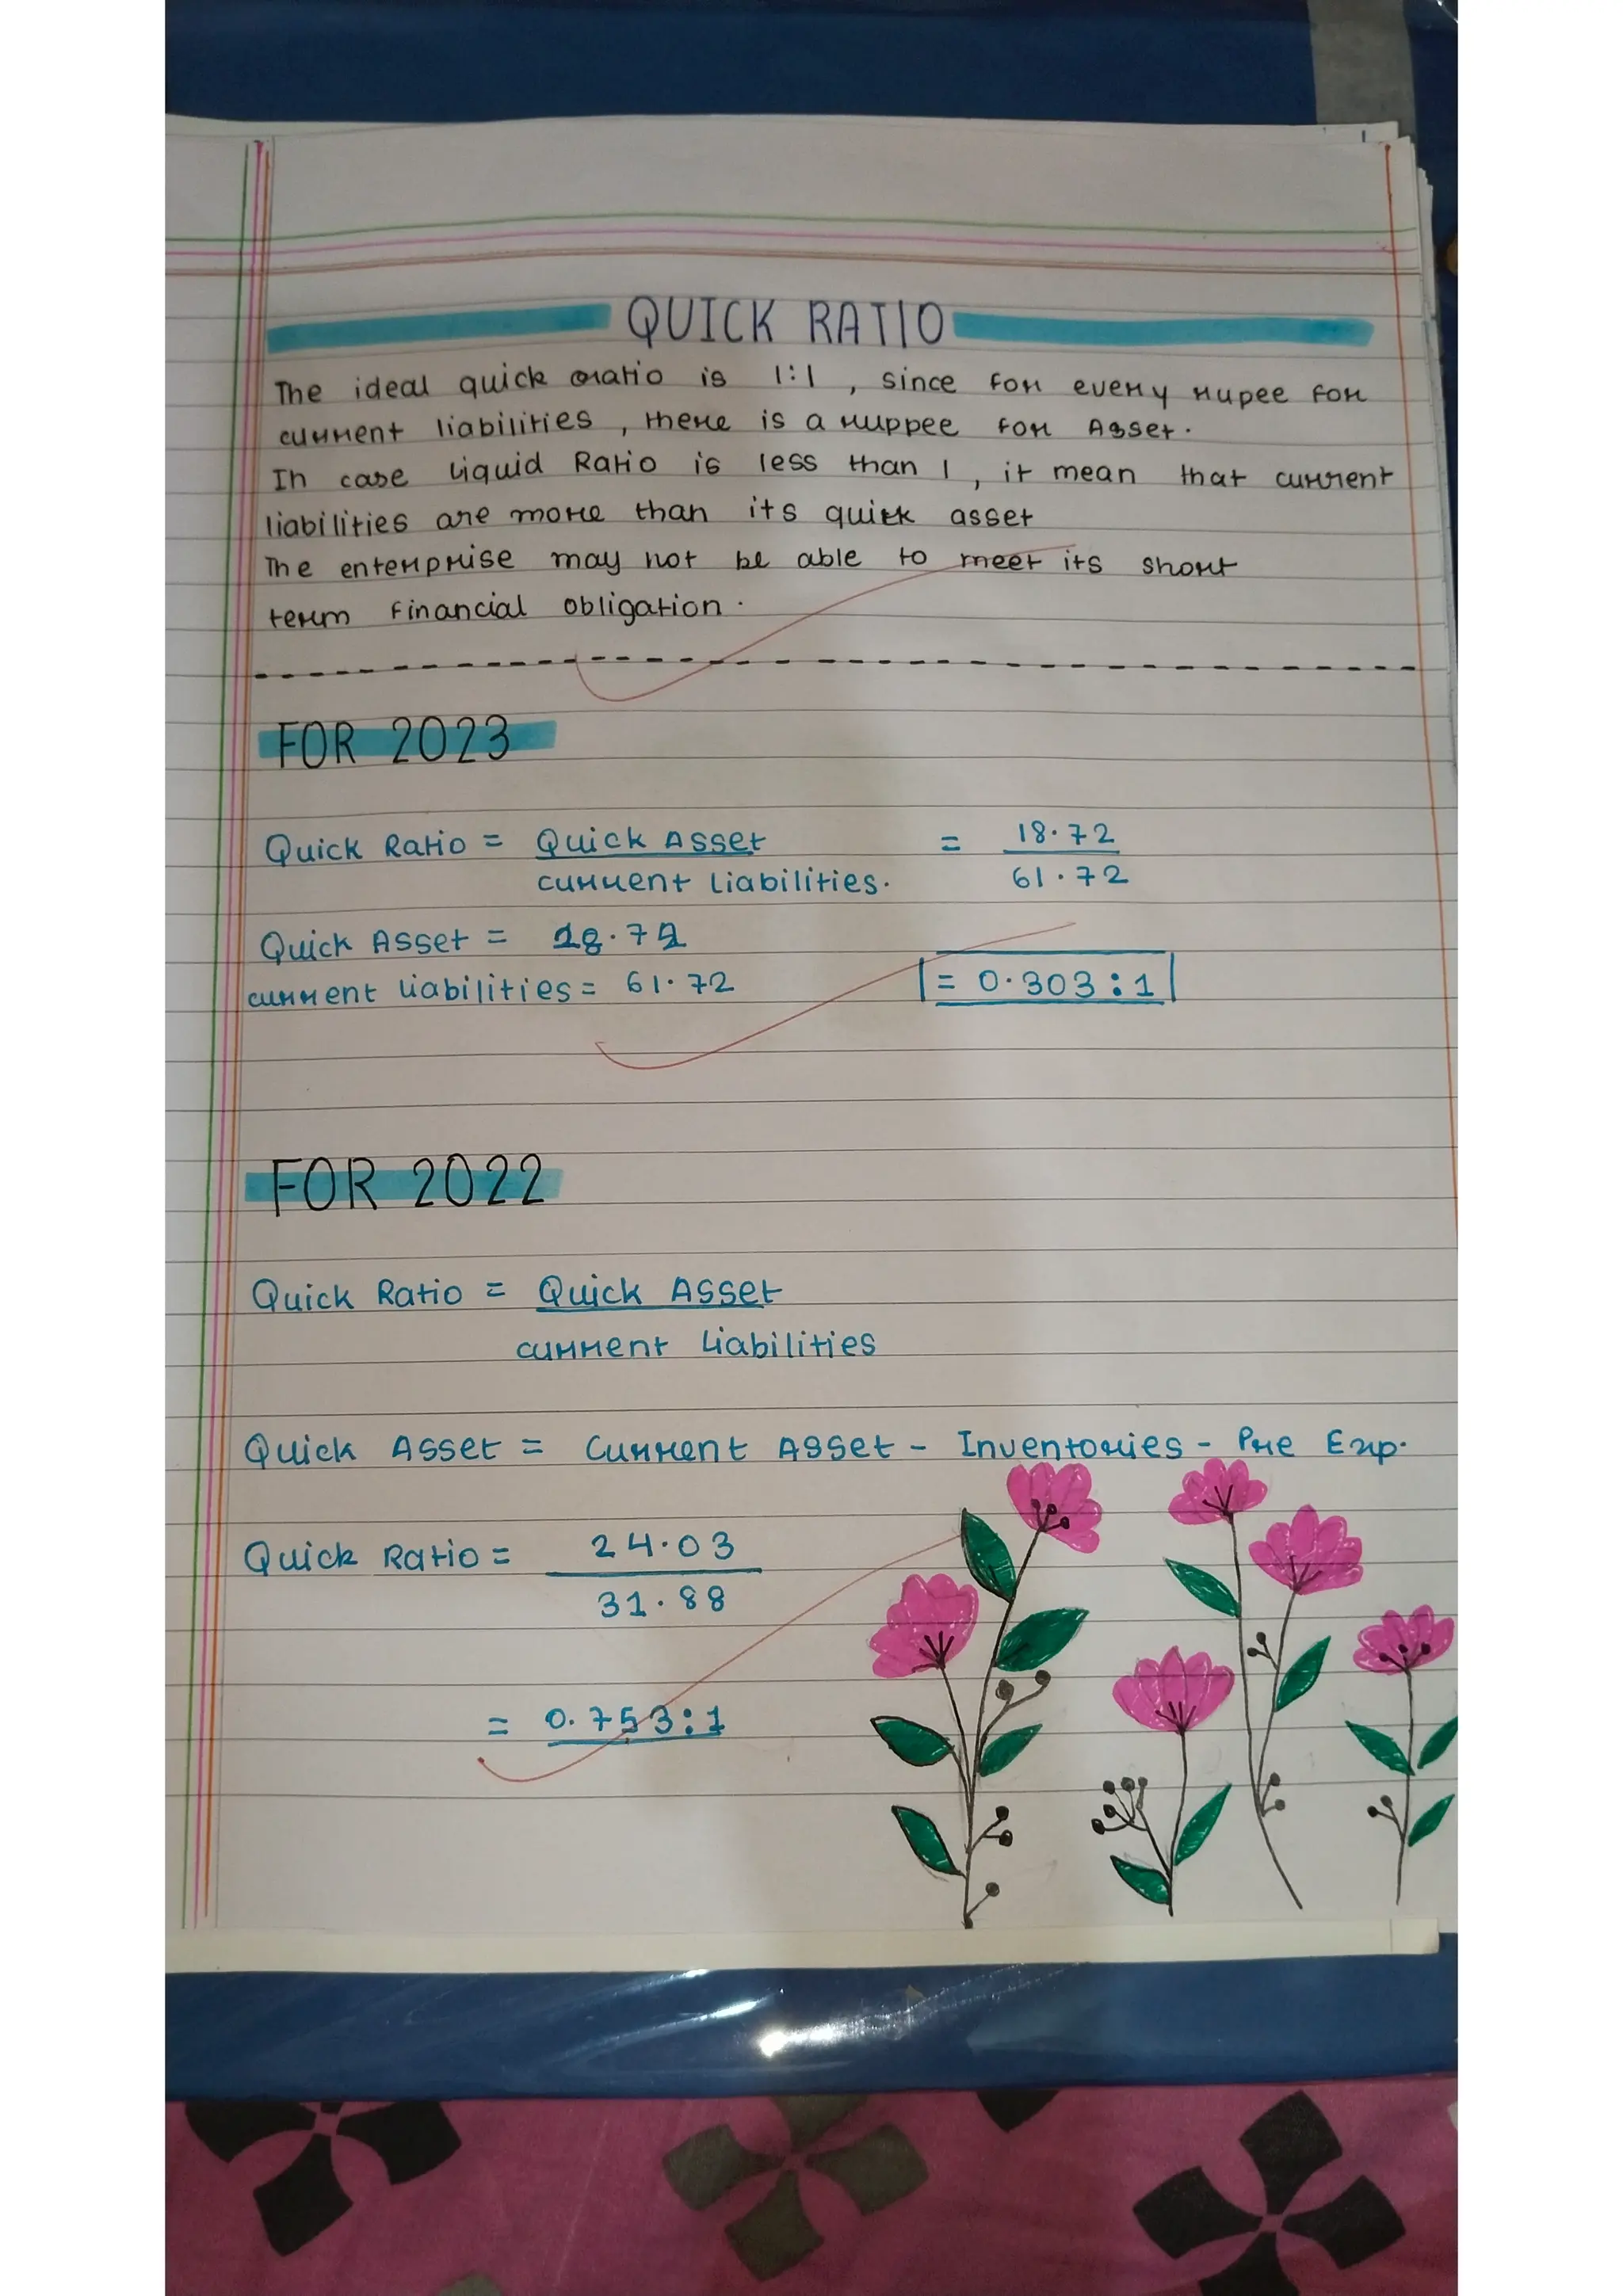 QUICK RATIO
The ideal quick ratio is 1:1 , since for every rupee for
current liabilities , there is a ruppee for Asset.
In case liquid Ratio is less than 1 , it mean that current
liabilities are more than its quick asset
The enterprise may not be able to meet its short
term financial obligation.
FOR 2023
Quick Ratio = Quick Asset = 18.72
current liabilities. 61.72
Quick Asset = 18.72
current liabilities = 61.72
= 0.303:1
FOR 2022
Quick Ratio = Quick Asset
current liabilities
Quick Asset = Current Asset - Inventories - Pre Exp.
Quick Ratio = 24.03
31.88
= 0.753:1